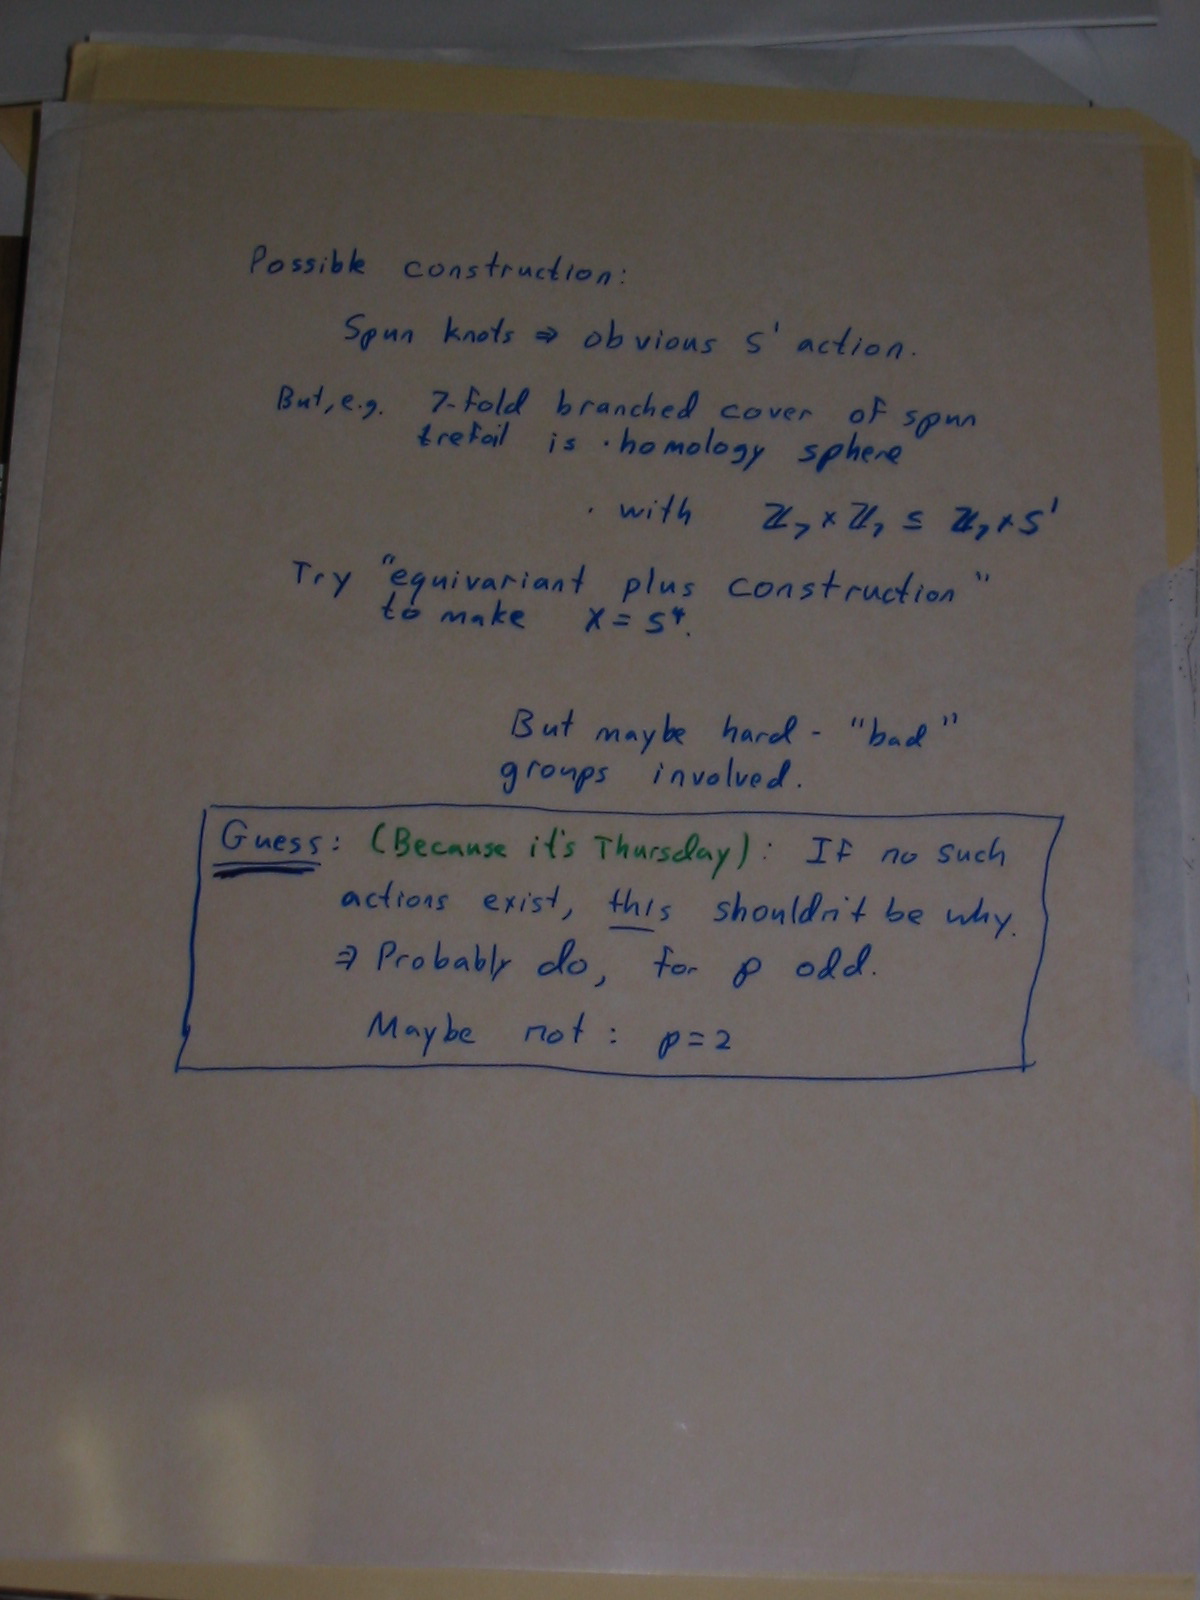 Possible construction:
Spun knots ⇒ obvious S¹ action.
But, e.g. 7-fold branched cover of spun
trefoil is · homology sphere
· with ℤ₇ × ℤ₇ ≤ ℤ₇ × S¹
Try "equivariant plus construction"
to make X = S⁴.
But maybe hard - "bad"
groups involved.
Guess: (Because it's Thursday): If no such
actions exist, this shouldn't be why.
⇒ Probably do, for p odd.
Maybe not: p=2